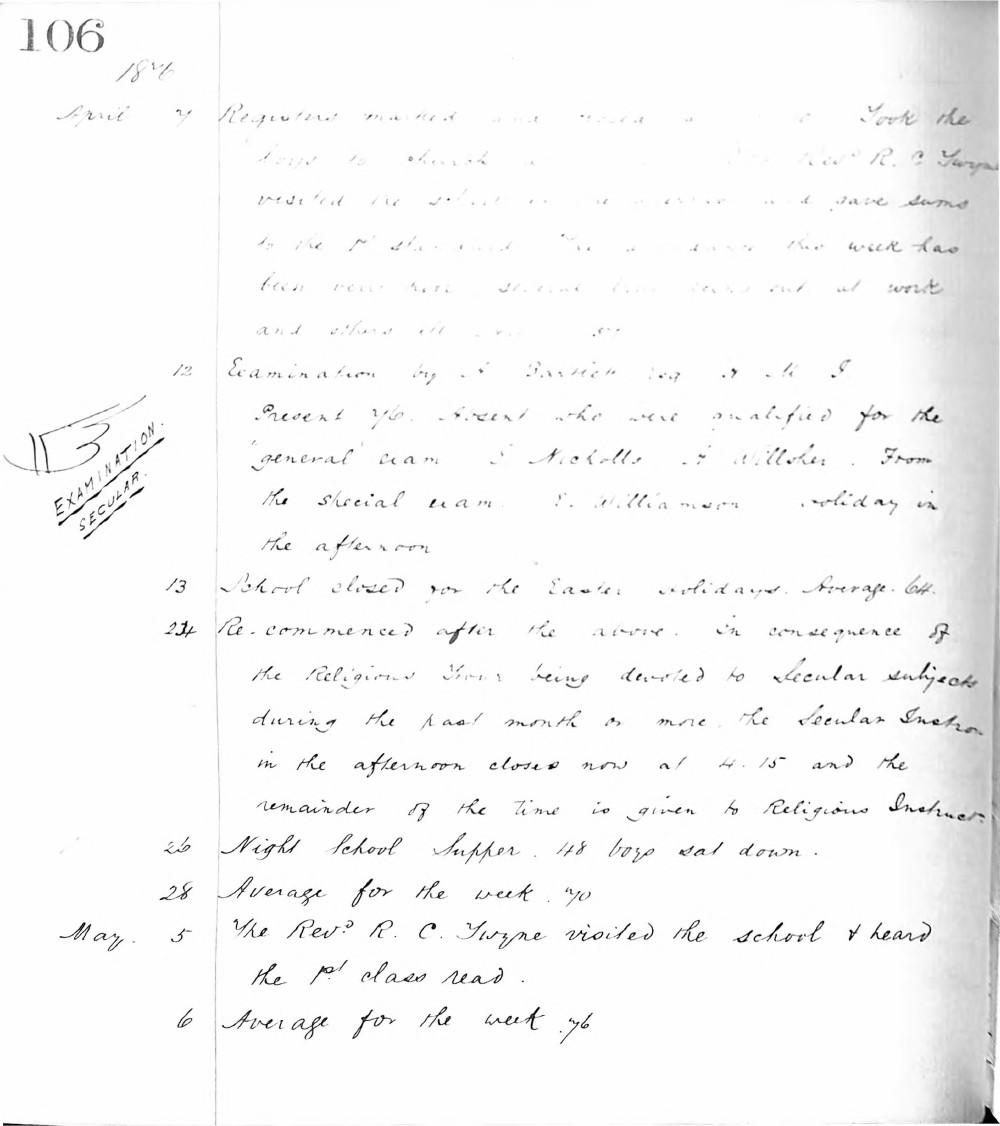 106
1876
April 7 Registers marked and Took the
boys to church Revd R. C. Twyne
visited the school in the and gave sums
to the 1st standard. The this week has
been very several out at work
and others ill
12 Examination by Esq H M I
Present 76. Absent who were qualified for the
'general' exam Nicholls Willsher. From
the special exam. E. Williamson Holiday in
the afternoon
EXAMINATION.
SECULAR.
13 School closed for the Easter Holidays. Average. 64.
24 Re-commenced after the above. In consequence of
the Religious Hour being devoted to Secular subjects
during the past month or more the Secular Instron
in the afternoon closes now at 4.15 and the
remainder of the time is given to Religious Instruct
26 Night School Supper. 48 boys sat down.
28 Average for the week. 70
May. 5 The Revd R. C. Twyne visited the school & heard
the 1st class read.
6 Average for the week 76